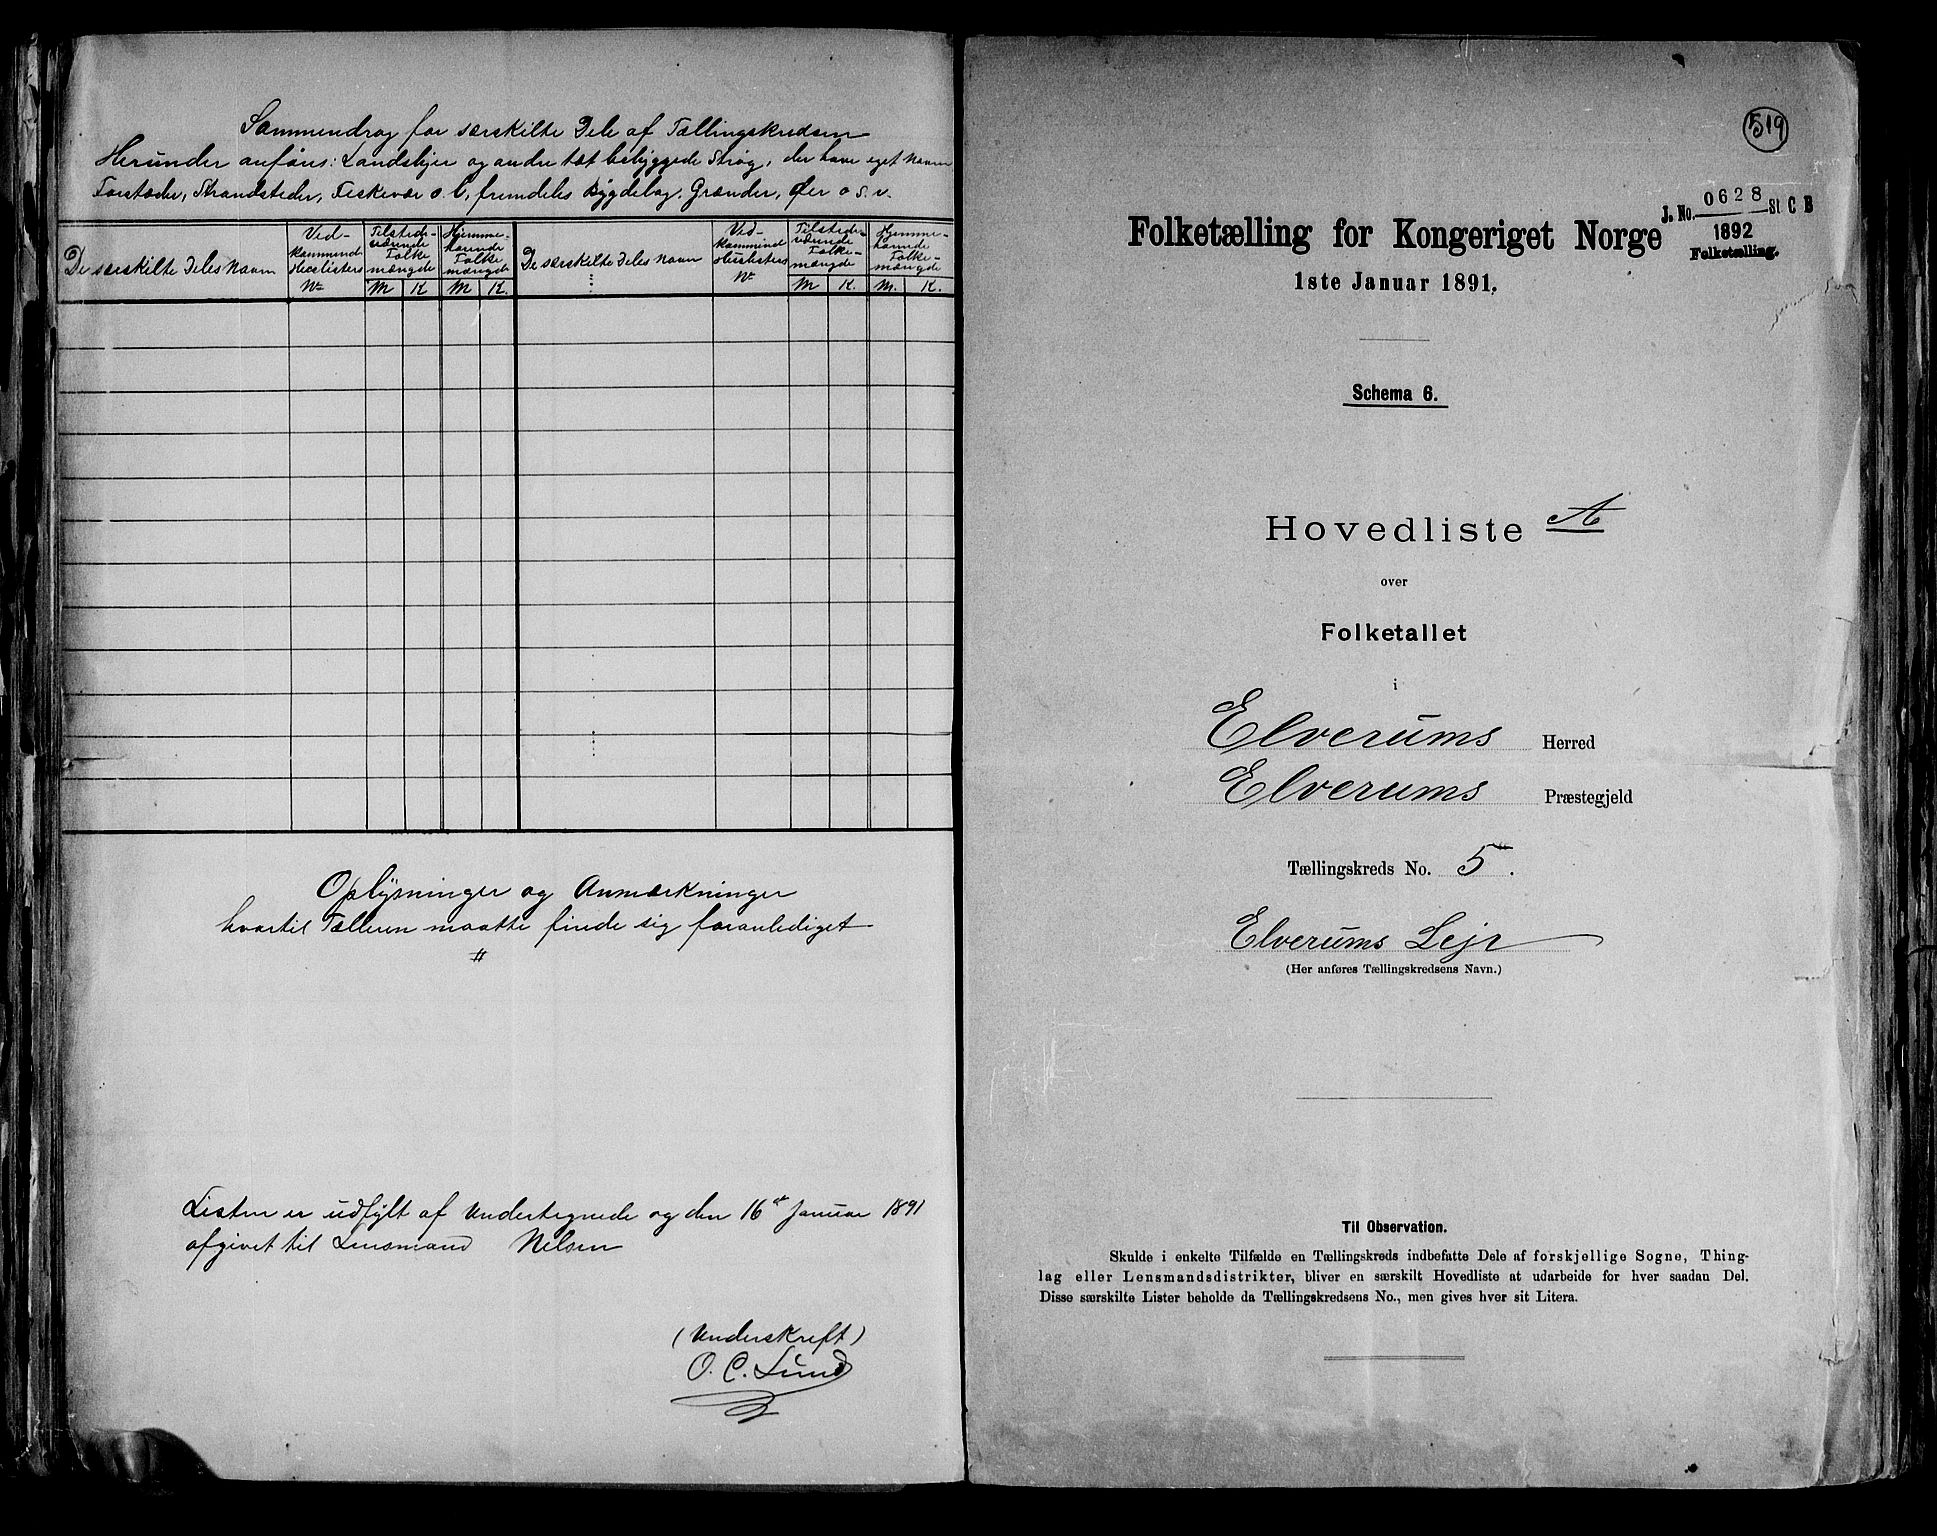 Sammendrag for særskilte Dele af Tællingskredsen
Herunder anføres: Landsbyer og andre tæt bebyggede Strøg, der have eget Navn
Forstæder, Strandsteder, Fiskevær o. l., fremdeles Bygdelag, Grænder, Øer o. s. v.
De særskilte Deles Navn
Ved-
kommende
Huslisters
No
Tilstede-
værende
Folke
mængde
M K
Hjemme-
hørende
Folke
mængde
M K.
De særskilte Deles Navn
Ved-
kommende
Huslisters
No
Tilstede-
værende
Folke-
mængde
M K.
Hjemme-
hørende
Folke-
mængde
M. K.
Oplysninger og Anmærkninger
hvortil Tælleren maatte finde sig foranlediget
//
Listen er udfylt af Undertegnede og den 16de Januar 1891
afgivet til Lensmand Nelsen
(Underskrift)
O. C. Lund
519
J. No. 0628 St C B
1892
Folketælling.
Folketælling for Kongeriget Norge
1ste Januar 1891.
Schema 6.
Hovedliste A
over
Folketallet
i
Elverums Herred
Elverums Præstegjeld
Tællingskreds No. 5.
Elverums Lejr
(Her anføres Tællingskredsens Navn.)
Til Observation.
Skulde i enkelte Tilfælde en Tællingskreds indbefatte Dele af forskjellige Sogne, Thing-
lag eller Lensmandsdistrikter, bliver en særskilt Hovedliste at udarbeide for hver saadan Del.
Disse særskilte Lister beholde da Tællingskredsens No., men gives hver sit Litera.